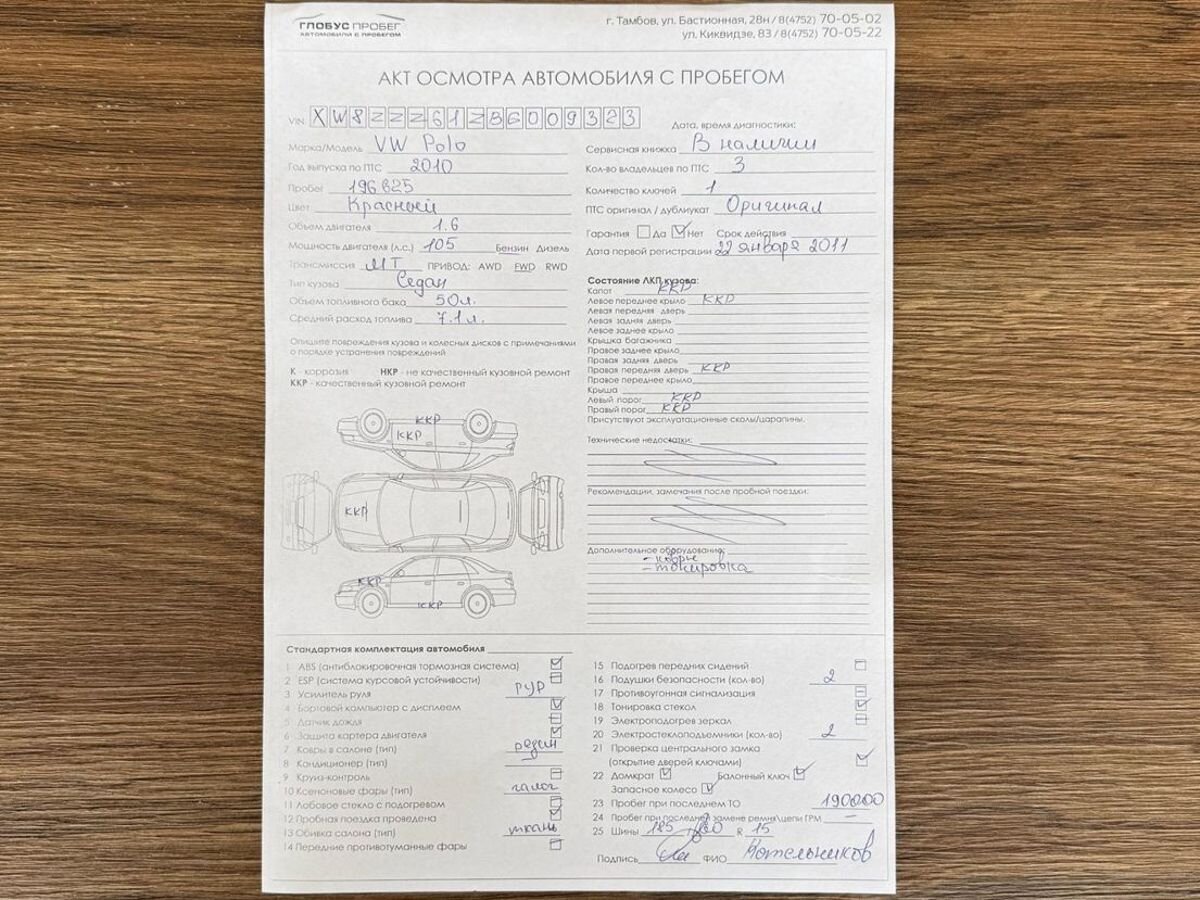 ГЛОБУС ПРОБЕГ
АВТОМОБИЛИ С ПРОБЕГОМ
г. Тамбов, ул. Бастионная, 28н / 8(4752) 70-05-02
ул. Киквидзе, 83 / 8(4752) 70-05-22
АКТ ОСМОТРА АВТОМОБИЛЯ С ПРОБЕГОМ
VIN XW8ZZZ61ZBG009323
Марка/Модель VW Polo
Год выпуска по ПТС 2010
Пробег 196825
Цвет Красный
Объем двигателя 1.6
Мощность двигателя (л.с.) 105 Бензин Дизель
Трансмиссия МТ ПРИВОД: AWD FWD RWD
Тип кузова Седан
Объем топливного бака 50л.
Средний расход топлива 7.1л.
Опишите повреждения кузова и колесных дисков с примечаниями
о порядке устранения повреждений
К - коррозия НКР - не качественный кузовной ремонт
ККР - качественный кузовной ремонт
ККР
ККР
ККР
ККР
ККР
Дата, время диагностики:
Сервисная книжка В наличии
Кол-во владельцев по ПТС 3
Количество ключей 1
ПТС оригинал / дубликат Оригинал
Гарантия Да Нет Срок действия
Дата первой регистрации 22 января 2011
Состояние ЛКП кузова:
Капот ККР
Левое переднее крыло ККР
Левая передняя дверь
Левая задняя дверь
Левое заднее крыло
Крышка багажника
Правое заднее крыло
Правая задняя дверь
Правая передняя дверь ККР
Правое переднее крыло
Крыша
Левый порог ККР
Правый порог ККР
Присутствуют эксплуатационные сколы/царапины.
Технические недостатки:
Рекомендации, замечания после пробной поездки:
Дополнительное оборудование:
- ковры
- тонировка
Стандартная комплектация автомобиля
1 ABS (антиблокировочная тормозная система)
2 ESP (система курсовой устойчивости)
3 Усилитель руля ГУР
4 Бортовой компьютер с дисплеем
5 Датчик дождя
6 Защита картера двигателя
7 Ковры в салоне (тип) резин
8 Кондиционер (тип)
9 Круиз-контроль
10 Ксеноновые фары (тип) галог
11 Лобовое стекло с подогревом
12 Пробная поездка проведена
13 Обивка салона (тип) ткань
14 Передние противотуманные фары
15 Подогрев передних сидений
16 Подушки безопасности (кол-во) 2
17 Противоугонная сигнализация
18 Тонировка стекол
19 Электроподогрев зеркал
20 Электростеклоподъемники (кол-во) 2
21 Проверка центрального замка
(открытие дверей ключами)
22 Домкрат Балонный ключ
Запасное колесо
23 Пробег при последнем ТО 190000
24 Пробег при последней замене ремня\цепи ГРМ —
25 Шины 185 / 60 R 15
Подпись ФИО Котельников